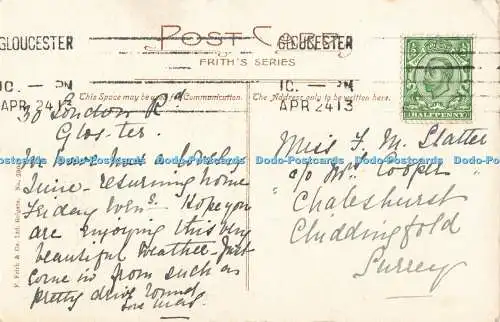 GLOUCESTER
10. — PM
APR 24 13
POST CARD
FRITH'S SERIES
GLOUCESTER
10. — PM
APR 24 13
HALFPENNY
This Space may be used for Communication.
The Address only to be written here.
30 London Rd
Glos-ter.
We have had a lovely
time - returning home
Friday Eveng. Hope you
are enjoying this very
beautiful weather. Just
come in from such a
pretty drive round
love
Miss F. M. Slatter
c/o Mrs Cooper
Chaleshurst
Chiddingfold
Surrey
F. Frith & Co. Ltd. Reigate. No.
Dodo-Postcards Dodo-Postcards Dodo-Postcards Dodo-Postcards Dodo-Postcards